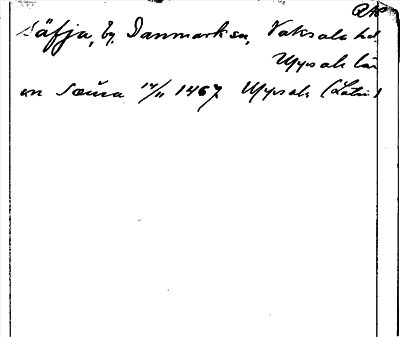 RAP
Säfja, by, Danmarks sn, Vaksala hd
Uppsala län
en Sæuia 14/11 1467 Uppsala (Latin)